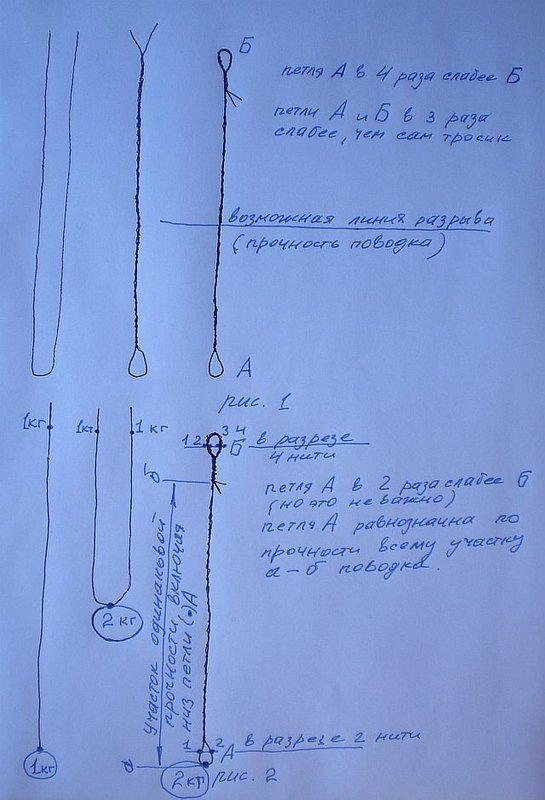 Б
петля А в 4 раза слабее Б
петли А и Б в 3 раза
слабее, чем сам тросик
возможная линия разрыва
(прочность поводка)
А
рис. 1
1кг
1кг
1кг
1 2
3 4
Б
в разрезе
4 нити
б
петля А в 2 раза слабее Б
(но это не важно)
петля А равнозначна по
прочности всему участку
а-б поводка.
участок одинаковой
прочности, включая
низ петли (•)А
2 кг
1
2
А
в разрезе 2 нити
а
1кг
2кг
рис. 2